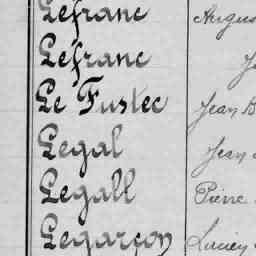 Lefranc Augus
Lefranc
Le Fustec Jean B
Legal Jean
Legall Pierre
Legarçon Lucien